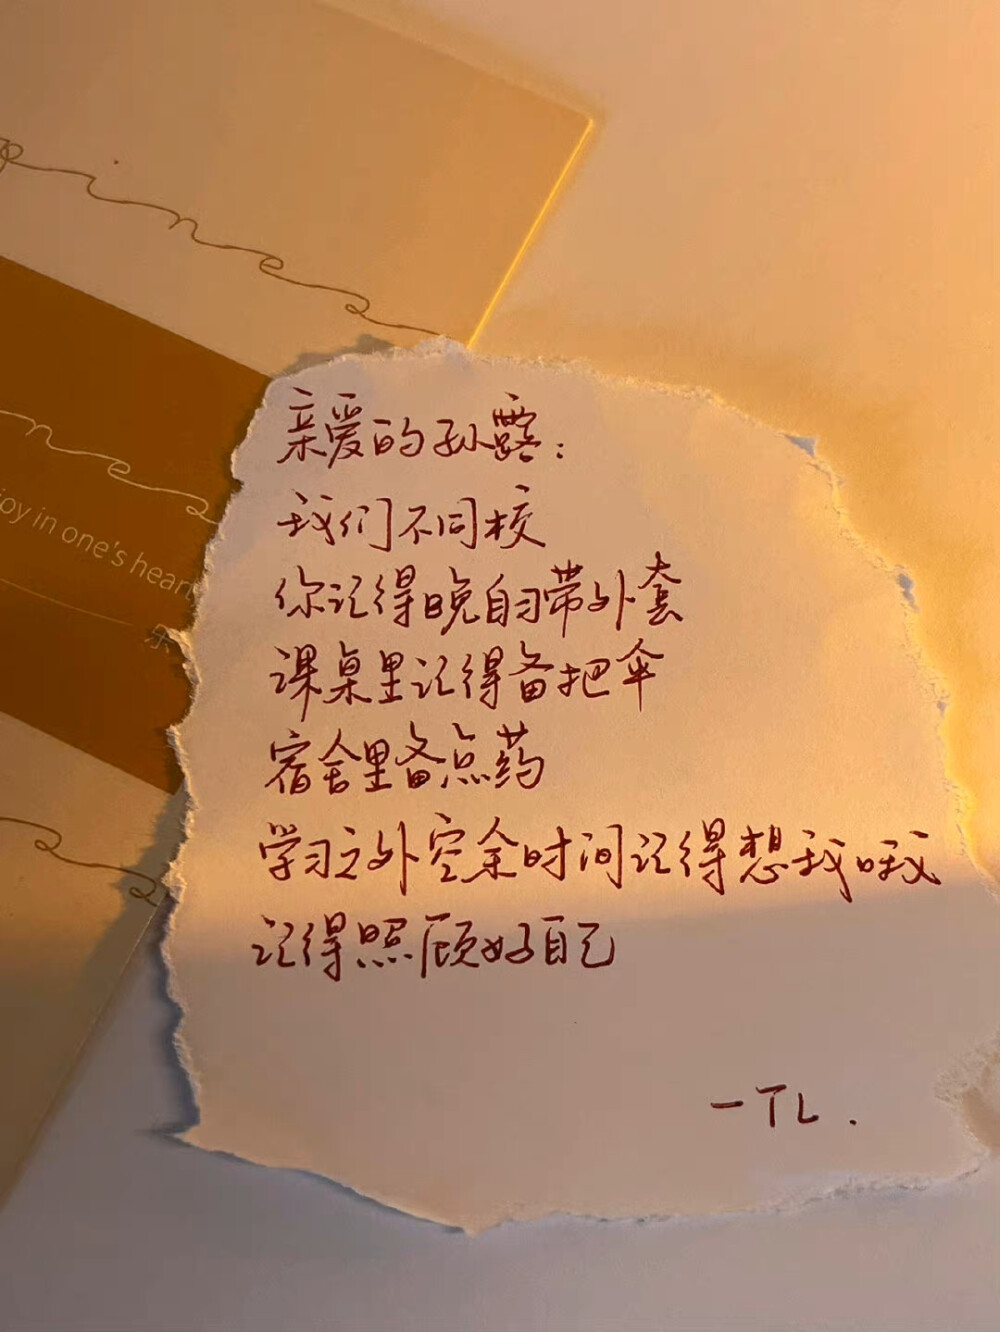 pine
ne
joy in one's heart
乐
亲爱的孙露：
我们不同校
你记得晚自习带外套
课桌里记得备把伞
宿舍里备点药
学习之外空余时间记得想我哦
记得照顾好自己
—TL.